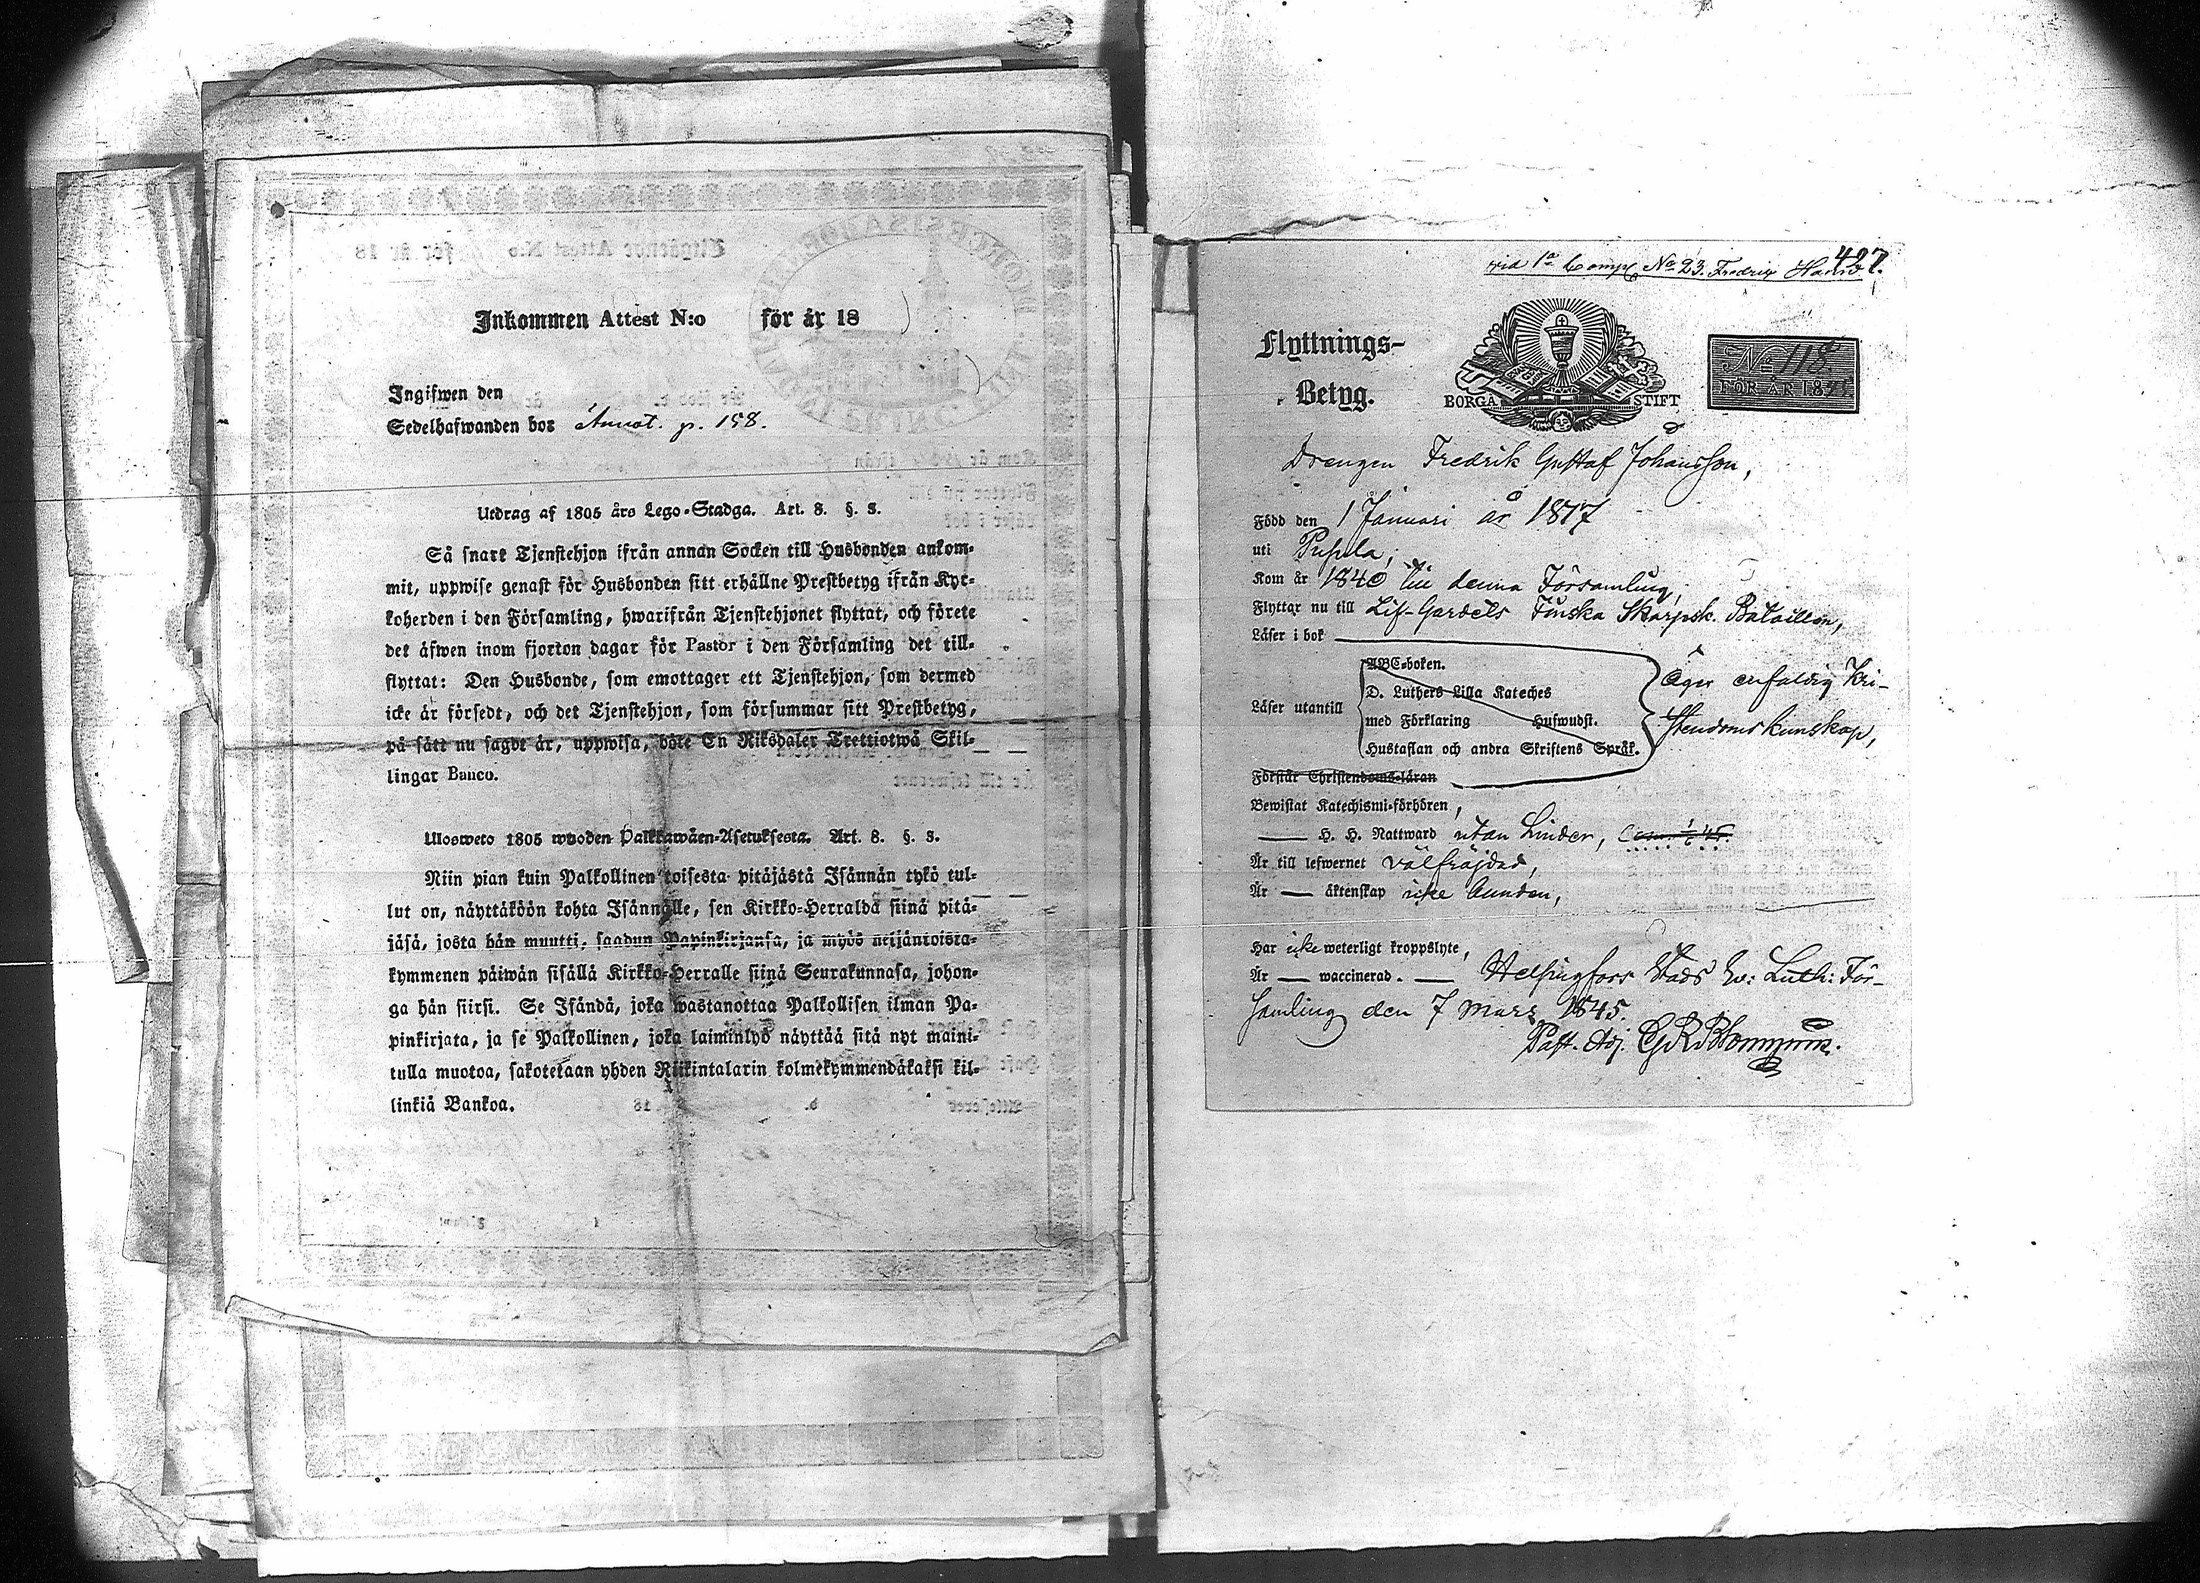 Inkommen Attest N:o för år 18
Ingifwen den
Sedelhafwanden bor Annot. p. 158.
Utdrag af 1805 års Lego-Stadga. Art. 8. §. 3.
Så snart Tjenstehjon ifrån annan Socken till Husbonden ankom-
mit, uppwise genast för Husbonden sitt erhållne Prestbetyg ifrån Kyr-
koherden i den Församling, hwarifrån Tjenstehjonet flyttat, och förete
det äfwen inom fjorton dagar för Pastor i den Församling det till-
flyttat: Den Husbonde, som emottager ett Tjenstehjon, som dermed
icke är försedt, och det Tjenstehjon, som försummar sitt Prestbetyg,
på sätt nu sagdt är, uppwisa, böte En Riksdaler Trettiotwå Skil-
lingar Banco.
Ulosweto 1805 wuoden Palkkawäen-Asetuksesta. Art. 8. §. 3.
Niin pian kuin Palkollinen toisesta pitäjästä Isännän tykö tul-
lut on, näyttäköön kohta Isännälle, sen Kirkko-Herralda siinä pitä-
jäsä, josta hän muutti, saadun Papinkirjansa, ja myös neljäntoista-
kymmenen päiwän sisällä Kirkko-Herralle siinä Seurakunnasa, johon-
ga hän siirsi. Se Isändä, joka wastanottaa Palkollisen ilman Pa-
pinkirjata, ja se Palkollinen, joka laiminlyö näyttää sitä nyt maini-
tulla muotoa, sakotetaan yhden Riikintalarin kolmekymmendäkaksi kil-
linkiä Bankoa.
407.
vid 1a Comp. No 23. Fredrig
Flyttnings-
Betyg.
BORGÅ STIFT
No 118.
FÖR ÅR 1845
Drengen Fredrik Gustaf Johansson,
Född den 1 Januari år 1817
uti Pusula,
Kom år 1840 till denna Församling,
Flyttar nu till Lif-Gardets Finska Skarpsk. Bataillon,
Läser i bok
ABC-boken.
D. Luthers Lilla Kateches
Läser utantill
med Förklaring Hufwudst.
Hustaflan och andra Skriftens Språk.
Äger enfaldig Kri-
stendoms kunskap,
Förstår Christendoms-läran
Bewistat Katechismi-förhören,
— H. H. Nattward utan hinder,
Är till lefwernet välfräjdad,
Är — äktenskap icke bunden,
Har icke weterligt kroppslyte,
Är — waccinerad. — Helsingfors Stads Ev: Luth: För-
samling den 7 Mars 1845.
Past. Adj.